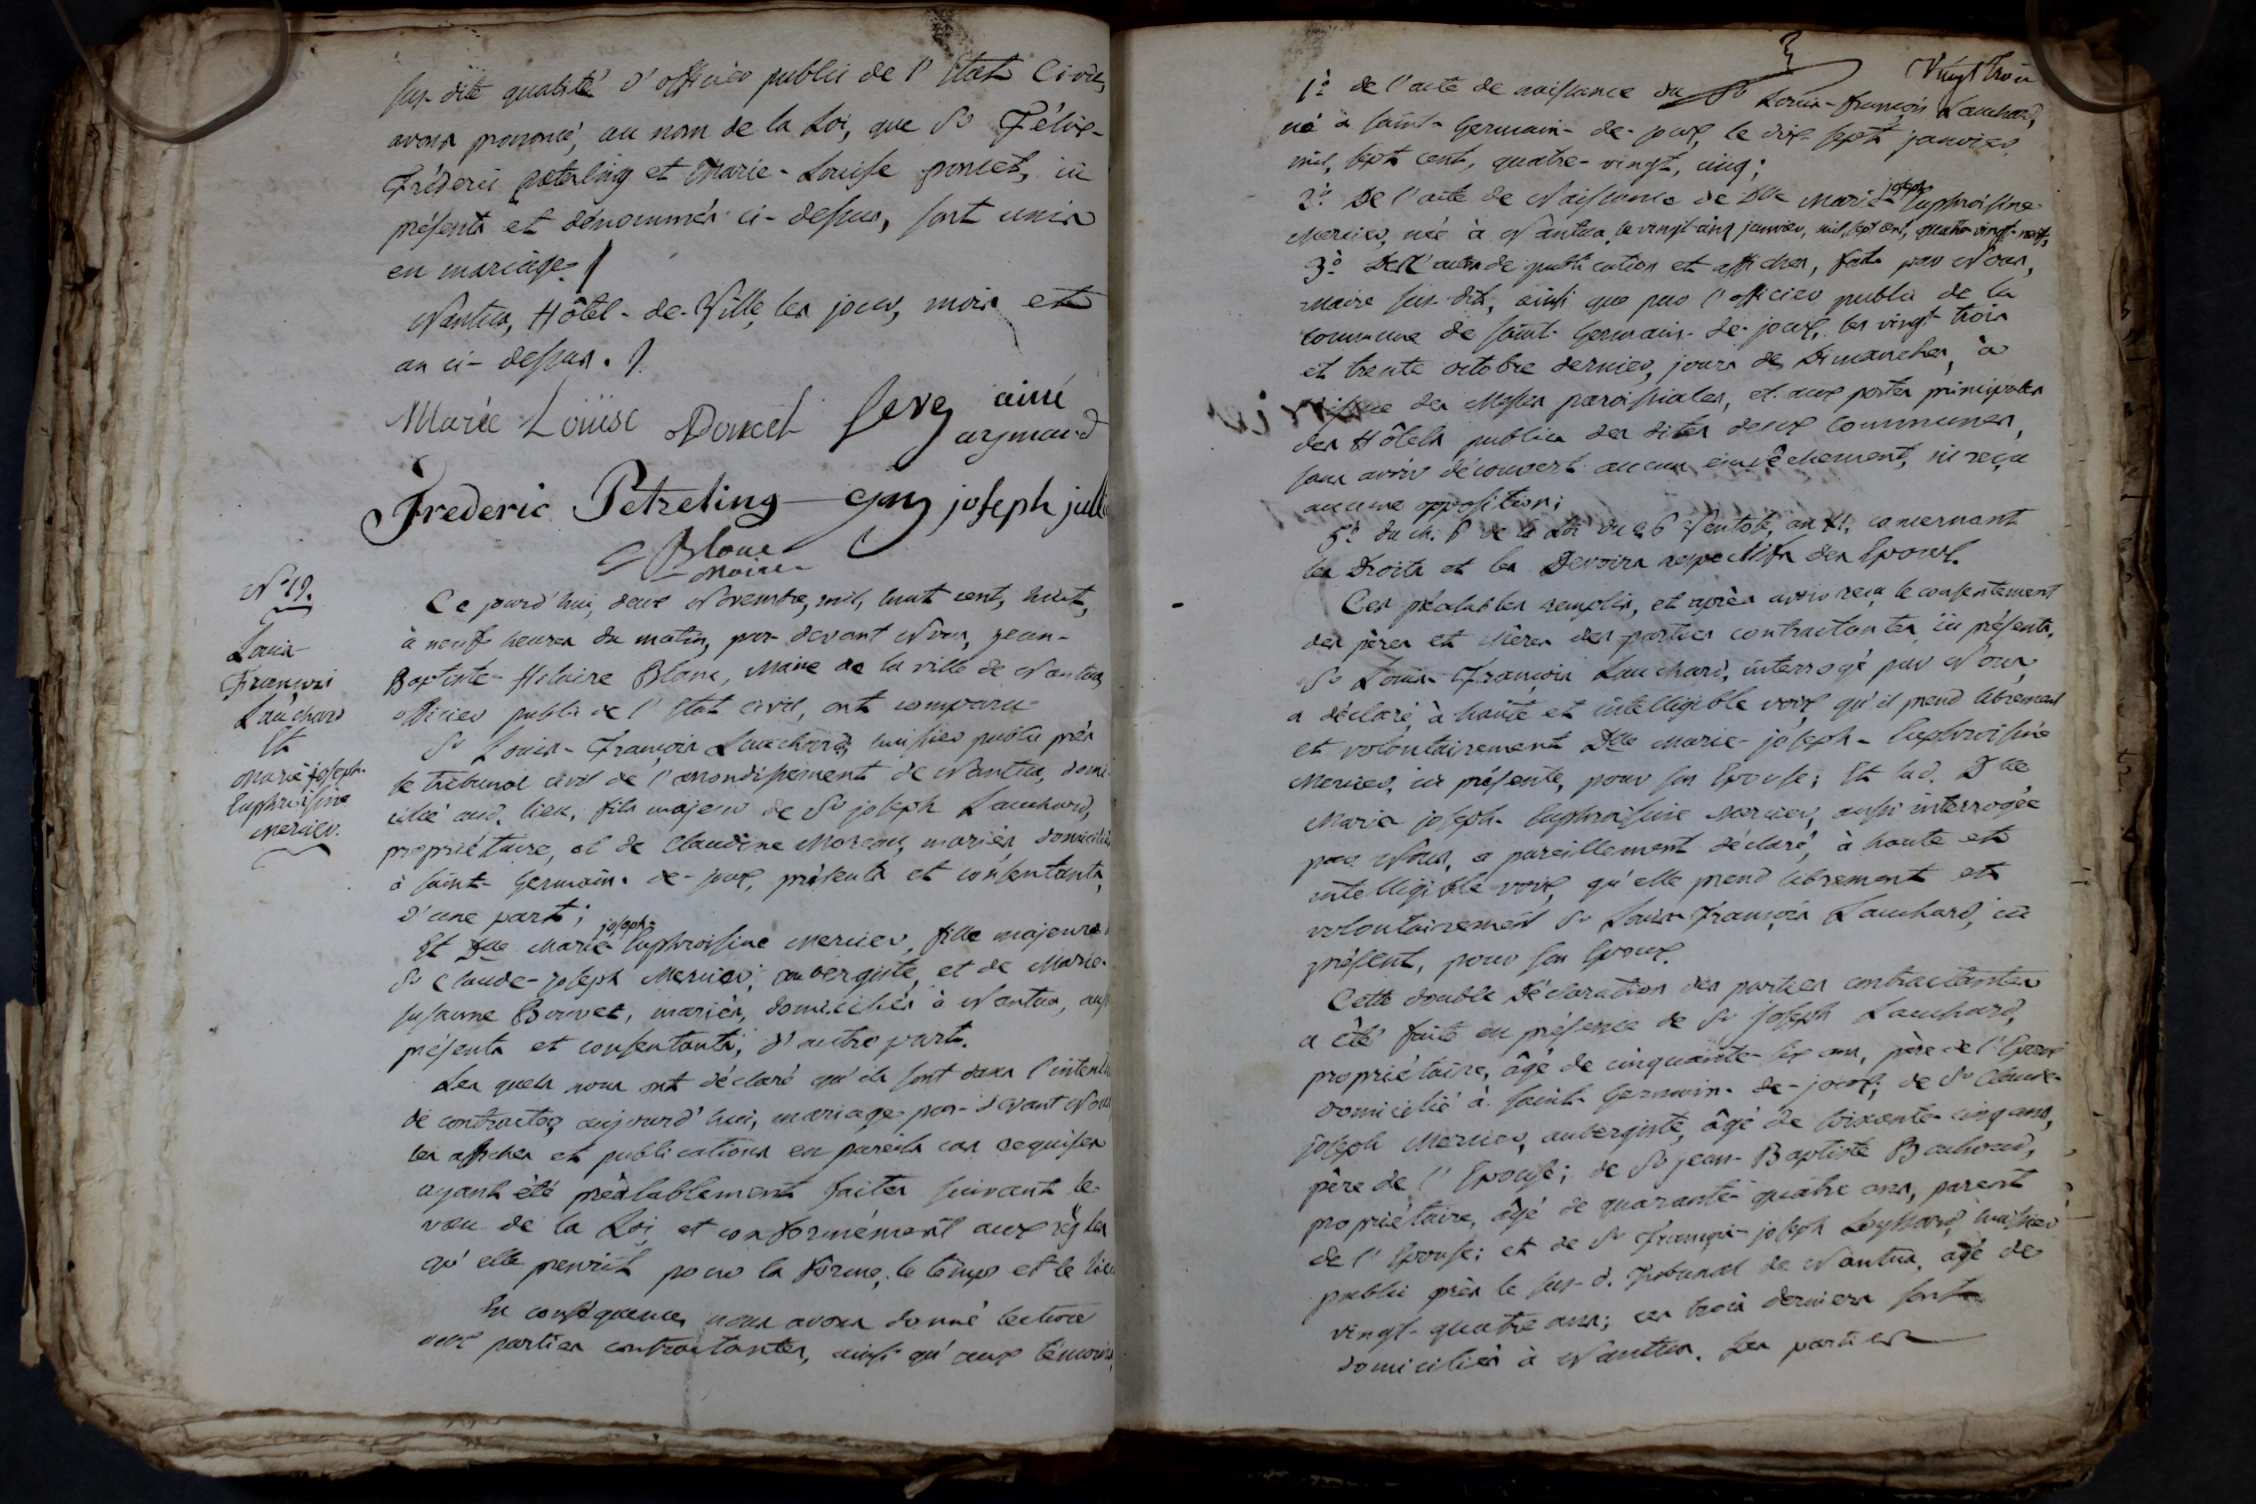 sus-dite qualité d'officier public de l'Etat Civil,
avons prononcé, au nom de la Loi, que Sr Félix-
Fréderic Petreling et Marie-Louise poncet, ici
présents et dénommés ci-dessus, sont unis
en mariage.
Nantua, Hôtel-de-Ville, les jour, mois et
an ci-dessus.
Marie Louïse Poncet Seve aimé
aymard
Frederic Petzeling Guy joseph
Blanc
Maire
N° 19.
Louis-
François
Lauchard
Et
Marie joseph-
Euphroisine
Mercier.
Ce jourd'hui, deux Novembre, mil, huit cent, huit,
à neuf heures du matin, par-devant Nous, Jean-
Baptiste-Hilaire Blanc, Maire de la ville de Nantua,
officier public de l'Etat civil, ont comparu
Sr Louis-François Lauchard, huissier public près
le tribunal civil de l'arrondissement de Nantua, domi-
cilié aud. lieu, fils majeur de Sr joseph Lauchard,
propriétaire, et de Claudine Moreau, mariés domiciliés
à Saint-Germain-de-joux, présents et consentants,
d'une part;
joseph-
Et Dlle Marie Euphroisine Mercier, fille majeure
Sr Claude-joseph Mercier, aubergiste, et de Marie-
susanne Bouvet, mariés, domiciliés à Nantua, aussi
présents et consentants, d'autre part.
Les quels nous ont déclaré qu'ils sont dans l'intention
de contracter, aujourd'hui, mariage par-devant Nous
les affiches et publications en pareils cas requises
ayant été préalablement faites suivant le
vœu de la Loi et conformément aux règles
qu'elle prescrit pour la forme, le temps et le lieu
En conséquence, nous avons donné lecture
aux parties contractantes, ainsi qu'aux témoins,
Vingt trois
1° de l'acte de naissance du Sr Louis-françois Lauchard,
né à Saint-Germain-de-joux, le dix-sept janvier
mil, sept cent, quatre-vingt, cinq;
joseph
2° De l'acte de Naissance de Dlle Marie Euphroisine
Mercier, née à Nantua, le vingt-cinq janvier, mil sept cent, quatre-vingt-neuf,
3° Des actes de publication et affiches, faits par Nous,
Maire sus-dit, ainsi que par l'officier public de la
commune de Saint-Germain-de-joux, les vingt-trois
et trente octobre dernier, jours de Dimanches, à
l'issue des Messes paroissiales, et aux portes principales
des Hôtels publics des dites deux Communes,
sans avoir découvert aucun empêchement, ni reçu
aucune opposition;
5° du ch. 6 de la Loi du 26 Ventôse, an XI. concernant
les Droits et les Devoirs respectifs des Epoux.
Ces préalables remplis, et après avoir reçu le consentement
des pères et Mères des parties contractantes ici présents,
Sr Louis-François Lauchard, interrogé par Nous,
a déclaré à haute et intelligible voix, qu'il prend librement
et volontairement Dlle Marie-joseph-Euphroisine
Mercier, ici présente, pour son Epouse; Et lad. Dlle
Marie joseph-Euphroisine Mercier, aussi interrogée
par Nous, a pareillement déclaré, à haute et
intelligible voix, qu'elle prend librement et
volontairement Sr Louis-François Lauchard, ici
présent, pour son Epoux.
Cette double Déclaration des parties contractantes
a été faite en présence de Sr joseph Lauchard,
propriétaire, âgé de cinquante-six ans, père de l'Epoux
domicilié à Saint-Germain-de-joux; de Sr Claude-
joseph Mercier, aubergiste, âgé de soixante-cinq ans,
père de l'Epouse; de Sr jean-Baptiste Bachoud,
propriétaire, âgé de quarante-quatre ans, parent
de l'Epouse; et de Sr François-joseph Leyssard, huissier
public près le sus-d. Tribunal de Nantua, âgé de
vingt-quatre ans; ces trois derniers sont
domiciliés à Nantua. Les parties